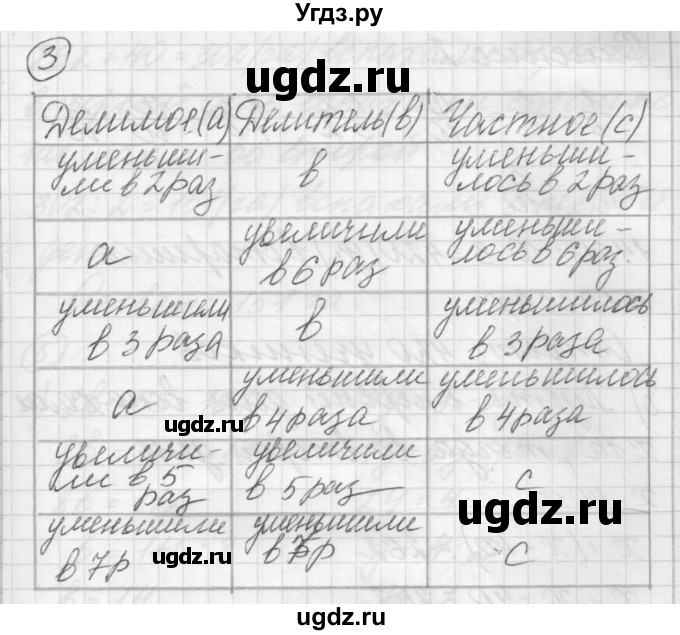 Угдз.ру
3
ugdz.ru
Делимое(а) Делитель(в) Частное(с)
уменьши- в уменьши-
ли в 2 раз лось в 2 раз
а увеличили уменьши-
в 6 раз лось в 6 раз.
уменьшили в уменьшилось
в 3 раза в 3 раза
а уменьшили уменьшилось
в 4 раза в 4 раза
увеличи- увеличили с
ли в 5 в 5 раз
раз
ugdz.ru
уменьшили уменьшили с
в 7р в 7р
ugdz.ru
ugdz.ru